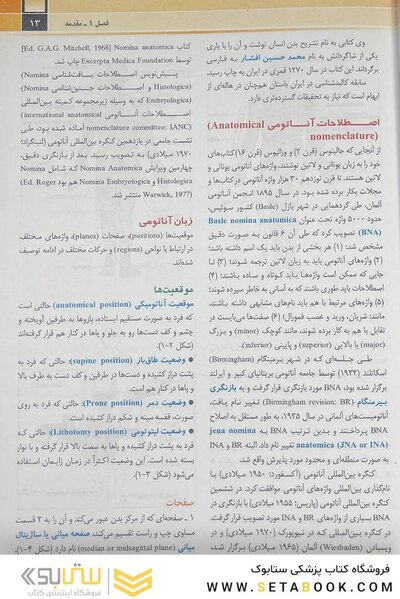 فصل ۱ ـ مقدمه
۱۳
وی کتابی به نام تشریح بدن انسان نوشت و آن را با یاری
یکی از شاگردانش به نام محمد حسین افشار به فارسی
برگرداند. این کتاب در سال ۱۲۷۰ قمری در ایران به چاپ رسید.
سابقه کالبدشناسی در ایران باستان هم‌چنان در هاله‌ای از
ابهام است که نیاز به تحقیقات گسترده‌تری دارد.
اصطلاحات آناتومی (Anatomical
nomenclature)
از آنجایی که جالینوس (قرن ۲) و وزالیوس (قرن ۱۶) کتاب‌های
خود را به زبان یونانی و لاتین نوشتند، واژه‌های آناتومی یونانی و
لاتین هستند. تا قرن نوزدهم ۳۰ هزار واژه آناتومی در کتاب‌ها و
مجلات بکار برده شده بود. در سال ۱۸۹۵ انجمن آناتومی
آلمان، طی گردهمایی در شهر بازل (Basle) کشور سوئیس،
حدود ۵۰۰۰ واژه تحت عنوان Basle nomina anatomica
(BNA) تصویب کرد که طی آن ۶ قانون به صورت دقیق
مشخص شد: (۱) هر بخشی از بدن باید یک اسم داشته باشد؛
(۲) واژه‌های آناتومی باید به زبان لاتین ترجمه شوند؛ (۳) تا
جایی که ممکن است واژه‌ها باید کوتاه و ساده باشند؛ (۴)
اصطلاحات باید طوری باشند که به آسانی به خاطر سپرده شوند؛
(۵) واژه‌های مرتبط با هم باید نام‌های مشابهی داشته باشند،
مانند: شریان، ورید و عصب فمورال؛ (۶) صفت‌ها می‌بایست در
تقابل با هم به کار برده شوند، مانند کوچک (minor) و بزرگ
(major) یا بالایی (superior) و پایینی (inferior).
طی جلسه‌ای که در شهر بیرمنگام (Birmingham)
اسکاتلند (۱۹۳۳) توسط جامعه آناتومی بریتانیای کبیر و ایرلند
برگزار شده بود، BNA مورد بازنگری قرار گرفت و به بازنگری
بیرمنگام (Birmingham revision: BR) تغییر نام یافت.
آناتومیست‌های آلمانی در سال ۱۹۳۵، به طور مستقل به اصلاح
BNA پرداختند و بدین ترتیب BNA به jena nomina
anatomica (JNA or INA) تغییر نام داد. البته BR و INA
به صورت منطقه‌ای و محدود مورد پذیرش واقع شد.
کنگره بین‌المللی آناتومی (آکسفورد؛ ۱۹۵۰ میلادی) با
نام‌گذاری بین‌المللی واژه‌های آناتومی موافقت کرد. در ششمین
کنگره بین‌المللی آناتومی (پاریس؛ ۱۹۵۵ میلادی) با بازنگری در
BNA بسیاری از واژه‌های BR و INA مورد تصویب قرار گرفت.
کنگره بین‌المللی که در نیویورک (۱۹۷۰ میلادی) و در
ویسبادن (Wiesbaden) آلمان (۱۹۶۵ میلادی) برگزار شد،
کتاب Nomina anatomica [Ed. G.A.G. Mitchell, 1968]
توسط Excerpta Medica Foundation چاپ شد.
پیش‌نویس اصطلاحات بافت‌شناسی (Nomina
Histologica) و اصطلاحات جنین‌شناسی (Nomina
Embryologica) که به وسیله زیرمجموعه کمیته بین‌المللی
اصطلاحات آناتومی (international anatomical
nomenclature committee: IANC) آماده شده بود، طی
نشست جامعی در یازدهمین کنگره بین‌المللی آناتومی (لنینگراد؛
۱۹۷۰ میلادی) به تصویب رسید. بعد از بازنگری دقیق،
چهارمین ویرایش Nomina Anatomica که شامل Nomina
Histologica و Nomina Embryologica هم بود (Ed Roger
Warwick, 1977) منتشر شد.
زبان آناتومی
موقعیت‌ها (positions)، صفحات (planes)، واژه‌های مختلف
در ارتباط با نواحی (regions) و حرکات مختلف در ادامه توصیف
شده‌اند.
موقعیت‌ها
موقعیت آناتومیکی (anatomical position) حالتی است
که فرد به صورت مستقیم ایستاده، بازوها به طرفین آویخته و
چشم و کف دست‌ها رو به جلو و پاها در کنار هم قرار گرفته‌اند
(شکل ۲–۱).
● وضعیت طاق‌باز (supine position): حالتی که فرد به
پشت دراز کشیده و دست‌ها در طرفین و کف دست به طرف بالا
و پاها در کنار هم است.
● وضعیت دمر (Prone position): حالتی که فرد به روی
صورت، قفسه سینه و شکم دراز کشیده است.
● وضعیت لیتوتومی (Lithotomy position): حالتی که
فرد به پشت دراز کشیده و پاها به سمت بالا قرار گرفته و با نوار
بسته شده است. این وضعیت اکثراً در زمان زایمان استفاده
می‌شود (شکل ۳–۱).
صفحات
۱ ـ صفحه‌ای که از مرکز بدن عبور می‌کند و آن را به ۲ قسمت
مساوی چپ و راست تقسیم می‌کند، صفحه میانی یا ساژیتال
میانی (median or midsagittal plane) نام دارد (شکل ۴–۱).
فروشگاه کتاب پزشکی ستابوک
WWW.SETABOOK.COM
ستابوک
فروشگاه اینترنتی کتاب